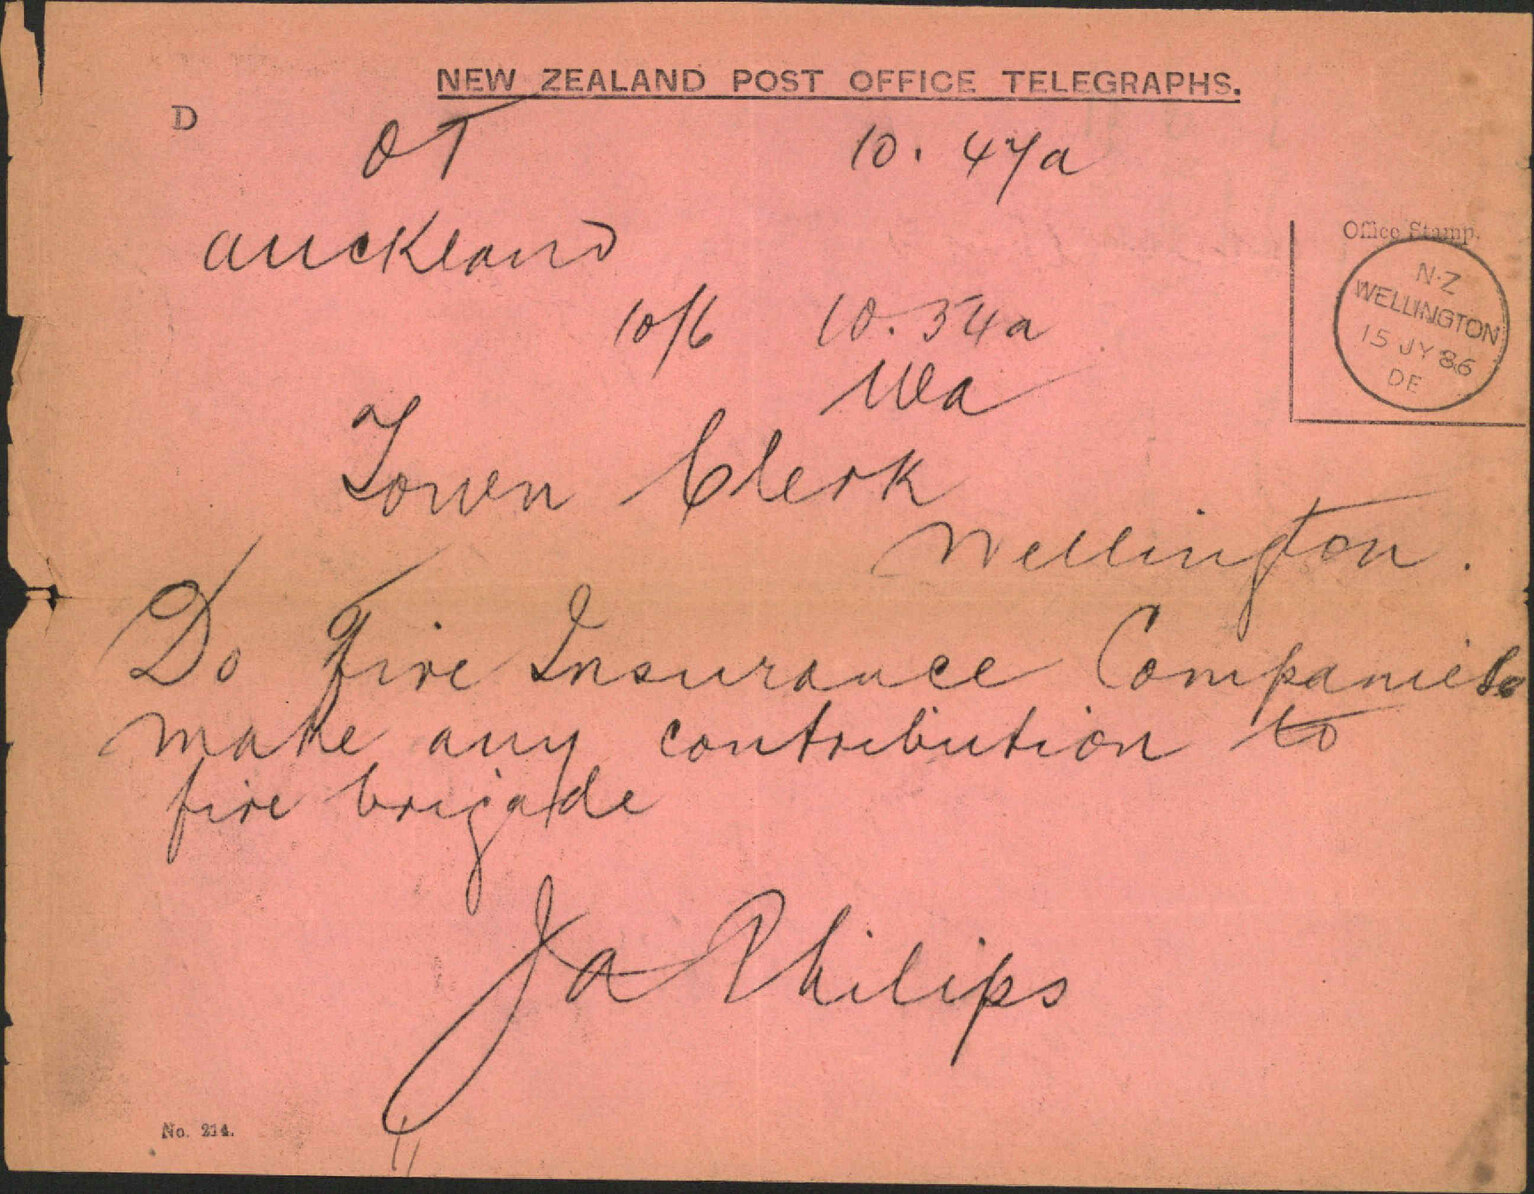 NEW ZEALAND POST OFFICE TELEGRAPHS.
D
OT 10.47a
Auckland
Office Stamp.
N·Z
WELLINGTON
15 JY 86
DE
10/6 10.54a
Town Clerk
Wellington.
Do Fire Insurance Companies
make any contribution to
fire brigade
Ja Philips
No. 214.